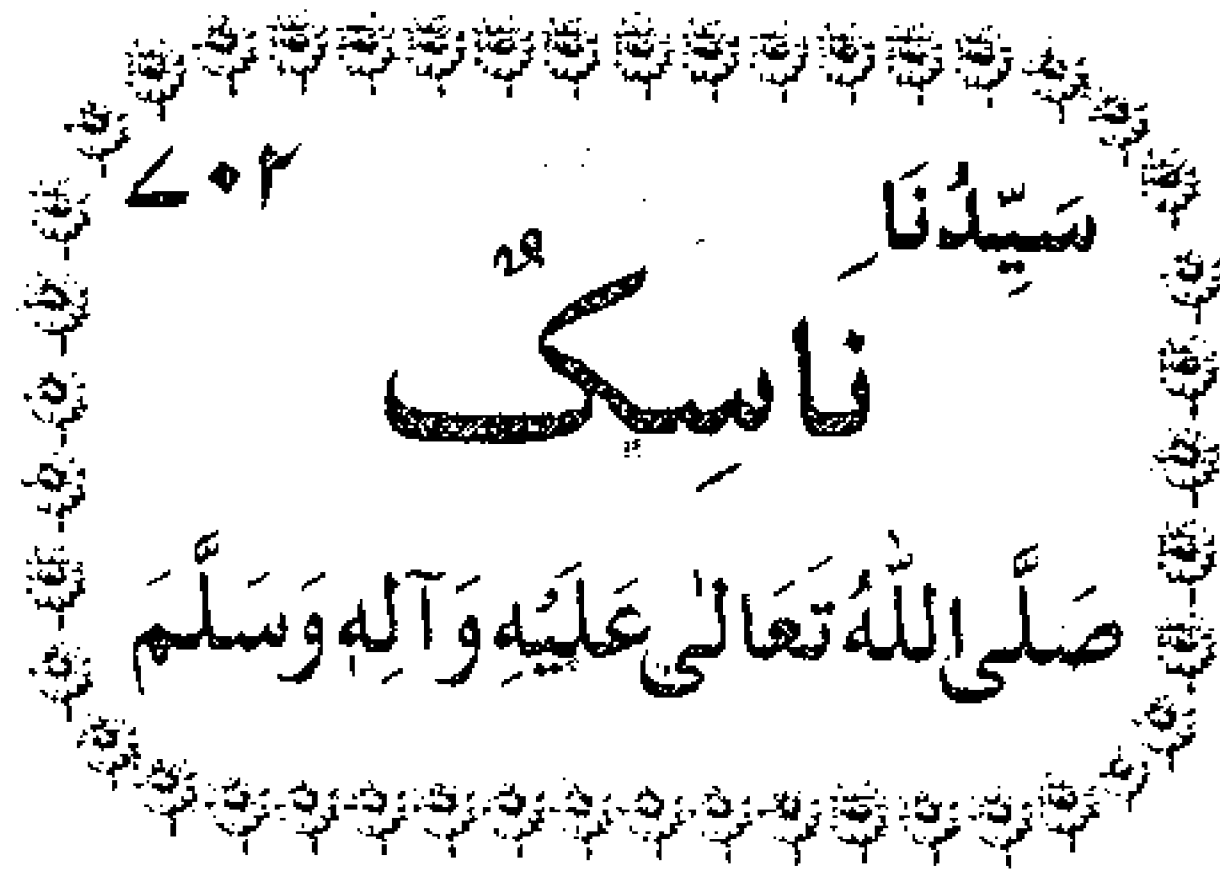 سَيِّدُنَا ۷۰۲
نَاسِكٌ
صَلَّى اللّٰهُ تَعَالٰى عَلَيْهِ وَآلِهٖ وَسَلَّمَ